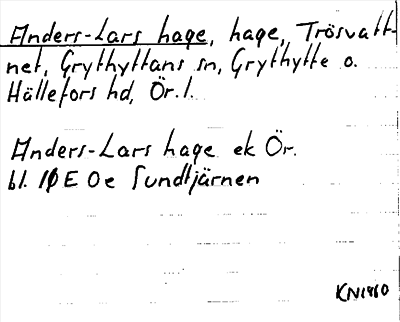 Anders-Lars hage, hage, Trösvatt-
net, Grythyttans sn, Grythytte o.
Hällefors hd, Ör. l.
Anders-Lars hage ek Ör.
bl. 10 E 0e Sundtjärnen
KN1960